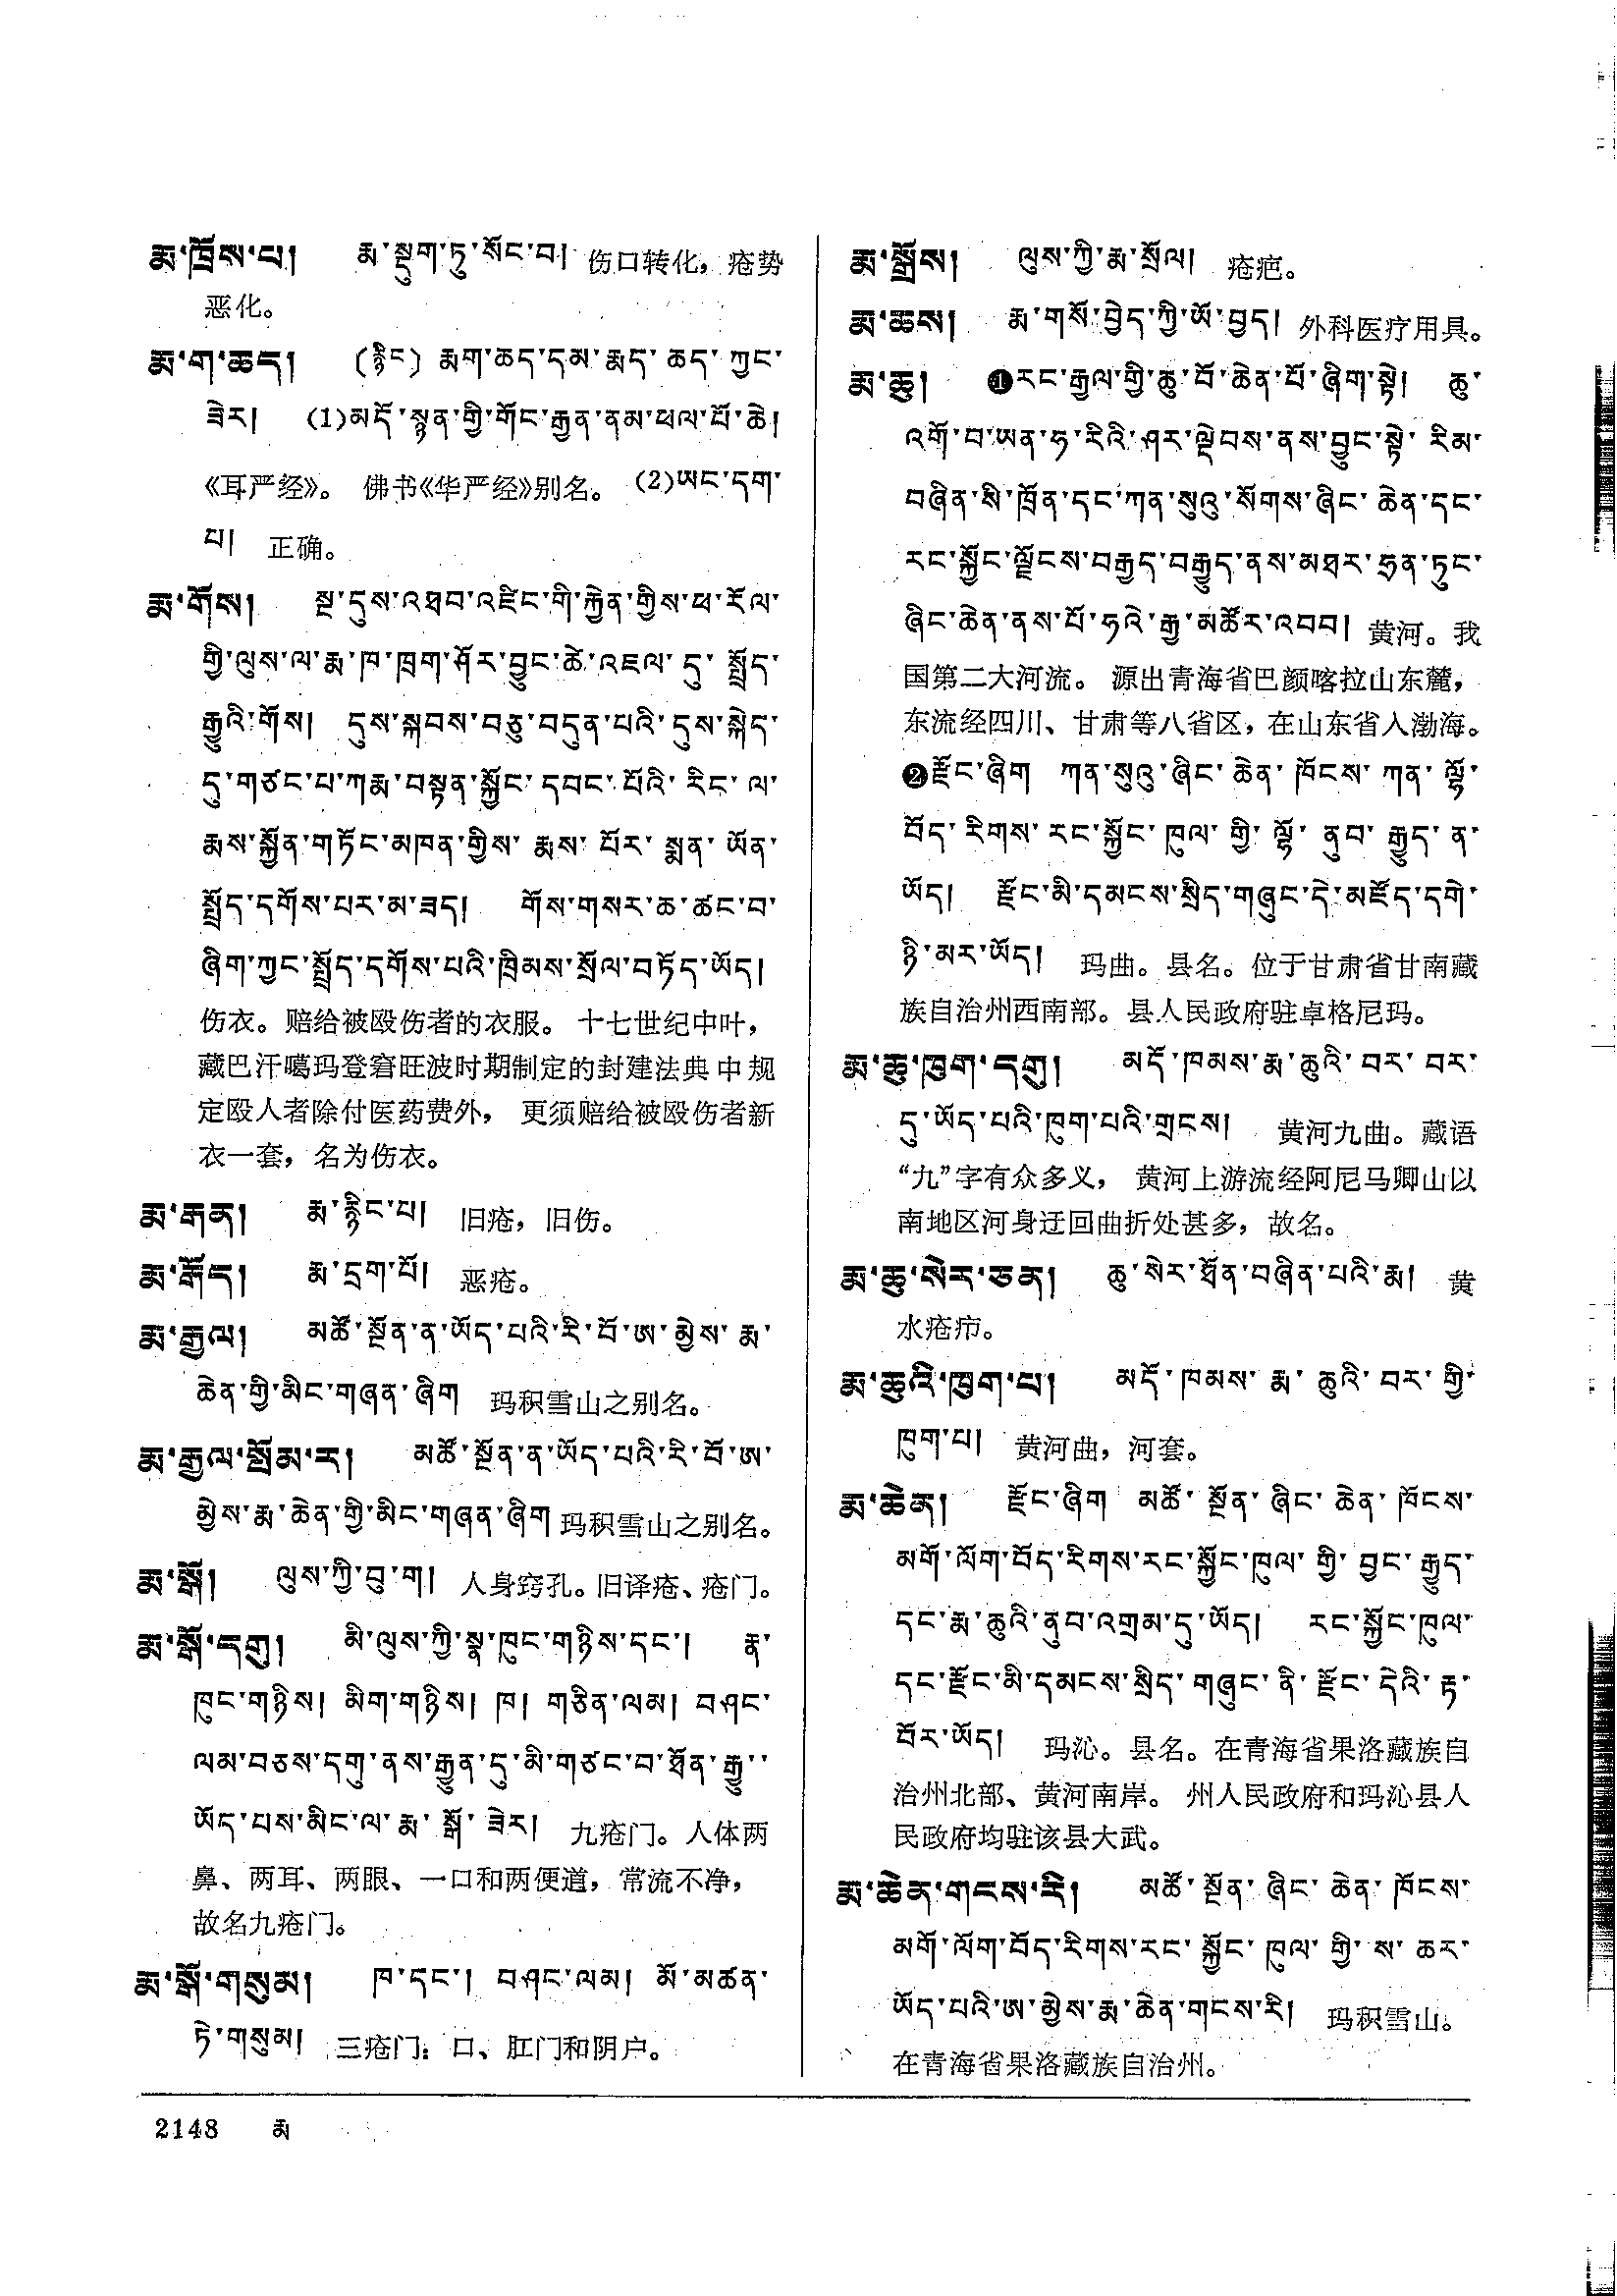 རྨ་ཁྲོས་པ། རྨ་སྡུག་ཏུ་སོང་བ། 伤口转化，疮势
恶化。
རྨ་ག་ཆད། (རྙིང) རྨག་ཆད་དམ་རྨད་ཆད་ཀྱང་
ཟེར། (1)མདོ་སྙན་གྱི་གོང་རྒྱན་ནམ་ཕལ་པོ་ཆེ།
《耳严经》。 佛书《华严经》别名。 (2)ཡང་དག་
པ། 正确。
རྨ་གོས། སྔ་དུས་འཐབ་འཛིང་གི་རྐྱེན་གྱིས་ཕ་རོལ་
གྱི་ལུས་ལ་རྨ་ཁ་ཁྲག་ཤོར་བྱུང་ཚེ་འཇལ་དུ་སྤྲོད་
རྒྱུའི་གོས། དུས་སྐབས་བཅུ་བདུན་པའི་དུས་སྐེད་
དུ་གཙང་པ་ཀརྨ་བསྟན་སྐྱོང་དབང་པོའི་རིང་ལ་
རྨས་སྐྱོན་གཏོང་མཁན་གྱིས་རྨས་པོར་སྨན་ཡོན་
སྤྲོད་དགོས་པར་མ་ཟད། གོས་གསར་ཆ་ཚང་བ་
ཞིག་ཀྱང་སྤྲོད་དགོས་པའི་ཁྲིམས་སྲོལ་བཏོད་ཡོད།
伤衣。赔给被殴伤者的衣服。 十七世纪中叶，
藏巴汗噶玛登窘旺波时期制定的封建法典中规
定殴人者除付医药费外， 更须赔给被殴伤者新
衣一套，名为伤衣。
རྨ་རྒན། རྨ་རྙིང་པ། 旧疮，旧伤。
རྨ་རྒོད། རྨ་དྲག་པོ། 恶疮。
རྨ་རྒྱལ། མཚོ་སྔོན་ན་ཡོད་པའི་རི་བོ་ཨ་མྱེས་རྨ་
ཆེན་གྱི་མིང་གཞན་ཞིག 玛积雪山之别名。
རྨ་རྒྱལ་སྤོམ་ར། མཚོ་སྔོན་ན་ཡོད་པའི་རི་བོ་ཨ་
མྱེས་རྨ་ཆེན་གྱི་མིང་གཞན་ཞིག 玛积雪山之别名。
རྨ་སྒོ། ལུས་ཀྱི་བུ་ག། 人身窍孔。旧译疮、疮门。
རྨ་སྒོ་དགུ། མི་ལུས་ཀྱི་སྣ་ཁུང་གཉིས་དང་། རྣ་
ཁུང་གཉིས། མིག་གཉིས། ཁ། གཅིན་ལམ། བཤང་
ལམ་བཅས་དགུ་ནས་རྒྱུན་དུ་མི་གཙང་བ་ཐོན་རྒྱུ་
ཡོད་པས་མིང་ལ་རྨ་སྒོ་ཟེར། 九疮门。人体两
鼻、两耳、两眼、一口和两便道，常流不净，
故名九疮门。
རྨ་སྒོ་གསུམ། ཁ་དང་། བཤང་ལམ། མོ་མཚན་
ཏེ་གསུམ། 三疮门：口、肛门和阴户。
2148 རྨ
རྨ་སྲོས། ལུས་ཀྱི་རྨ་སྲོལ། 疮疤。
རྨ་ཆས། རྨ་གསོ་བྱེད་ཀྱི་ཡོ་བྱད། 外科医疗用具。
རྨ་ཆུ། ❶རང་རྒྱལ་གྱི་ཆུ་བོ་ཆེན་པོ་ཞིག་སྟེ། ཆུ་
འགོ་བ་ཡན་ཧ་རིའི་ཤར་ལྡེབས་ནས་བྱུང་སྟེ་རིམ་
བཞིན་སི་ཁྲོན་དང་ཀན་སུའུ་སོགས་ཞིང་ཆེན་དང་
རང་སྐྱོང་ལྗོངས་བརྒྱད་བརྒྱུད་ནས་མཐར་ཧྲན་ཏུང་
ཞིང་ཆེན་ནས་པོ་ཧའེ་རྒྱ་མཚོར་འབབ། 黄河。我
国第二大河流。 源出青海省巴颜喀拉山东麓，
东流经四川、甘肃等八省区，在山东省入渤海。
❷རྫོང་ཞིག ཀན་སུའུ་ཞིང་ཆེན་ཁོངས་ཀན་ལྷོ་
བོད་རིགས་རང་སྐྱོང་ཁུལ་གྱི་ལྷོ་ནུབ་རྒྱུད་ན་
ཡོད། རྫོང་མི་དམངས་སྲིད་གཞུང་དེ་མཛོད་དགེ་
ཉི་མར་ཡོད། 玛曲。县名。位于甘肃省甘南藏
族自治州西南部。县人民政府驻卓格尼玛。
རྨ་ཆུ་ཁུག་དགུ། མདོ་ཁམས་རྨ་ཆུའི་བར་བར་
དུ་ཡོད་པའི་ཁུག་པའི་གྲངས། 黄河九曲。藏语
“九”字有众多义， 黄河上游流经阿尼马卿山以
南地区河身迂回曲折处甚多，故名。
རྨ་ཆུ་སེར་ཅན། ཆུ་སེར་ཐོན་བཞིན་པའི་རྨ། 黄
水疮疖。
རྨ་ཆུའི་ཁུག་པ། མདོ་ཁམས་རྨ་ཆུའི་བར་གྱི་
ཁུག་པ། 黄河曲，河套。
རྨ་ཆེན། རྫོང་ཞིག མཚོ་སྔོན་ཞིང་ཆེན་ཁོངས་
མགོ་ལོག་བོད་རིགས་རང་སྐྱོང་ཁུལ་གྱི་བྱང་རྒྱུད་
དང་རྨ་ཆུའི་ནུབ་འགྲམ་དུ་ཡོད། རང་སྐྱོང་ཁུལ་
དང་རྫོང་མི་དམངས་སྲིད་གཞུང་ནི་རྫོང་དེའི་རྟ་
བོར་ཡོད། 玛沁。县名。在青海省果洛藏族自
治州北部、黄河南岸。 州人民政府和玛沁县人
民政府均驻该县大武。
རྨ་ཆེན་གངས་རི། མཚོ་སྔོན་ཞིང་ཆེན་ཁོངས་
མགོ་ལོག་བོད་རིགས་རང་སྐྱོང་ཁུལ་གྱི་ས་ཆར་
ཡོད་པའི་ཨ་མྱེས་རྨ་ཆེན་གངས་རི། 玛积雪山。
在青海省果洛藏族自治州。